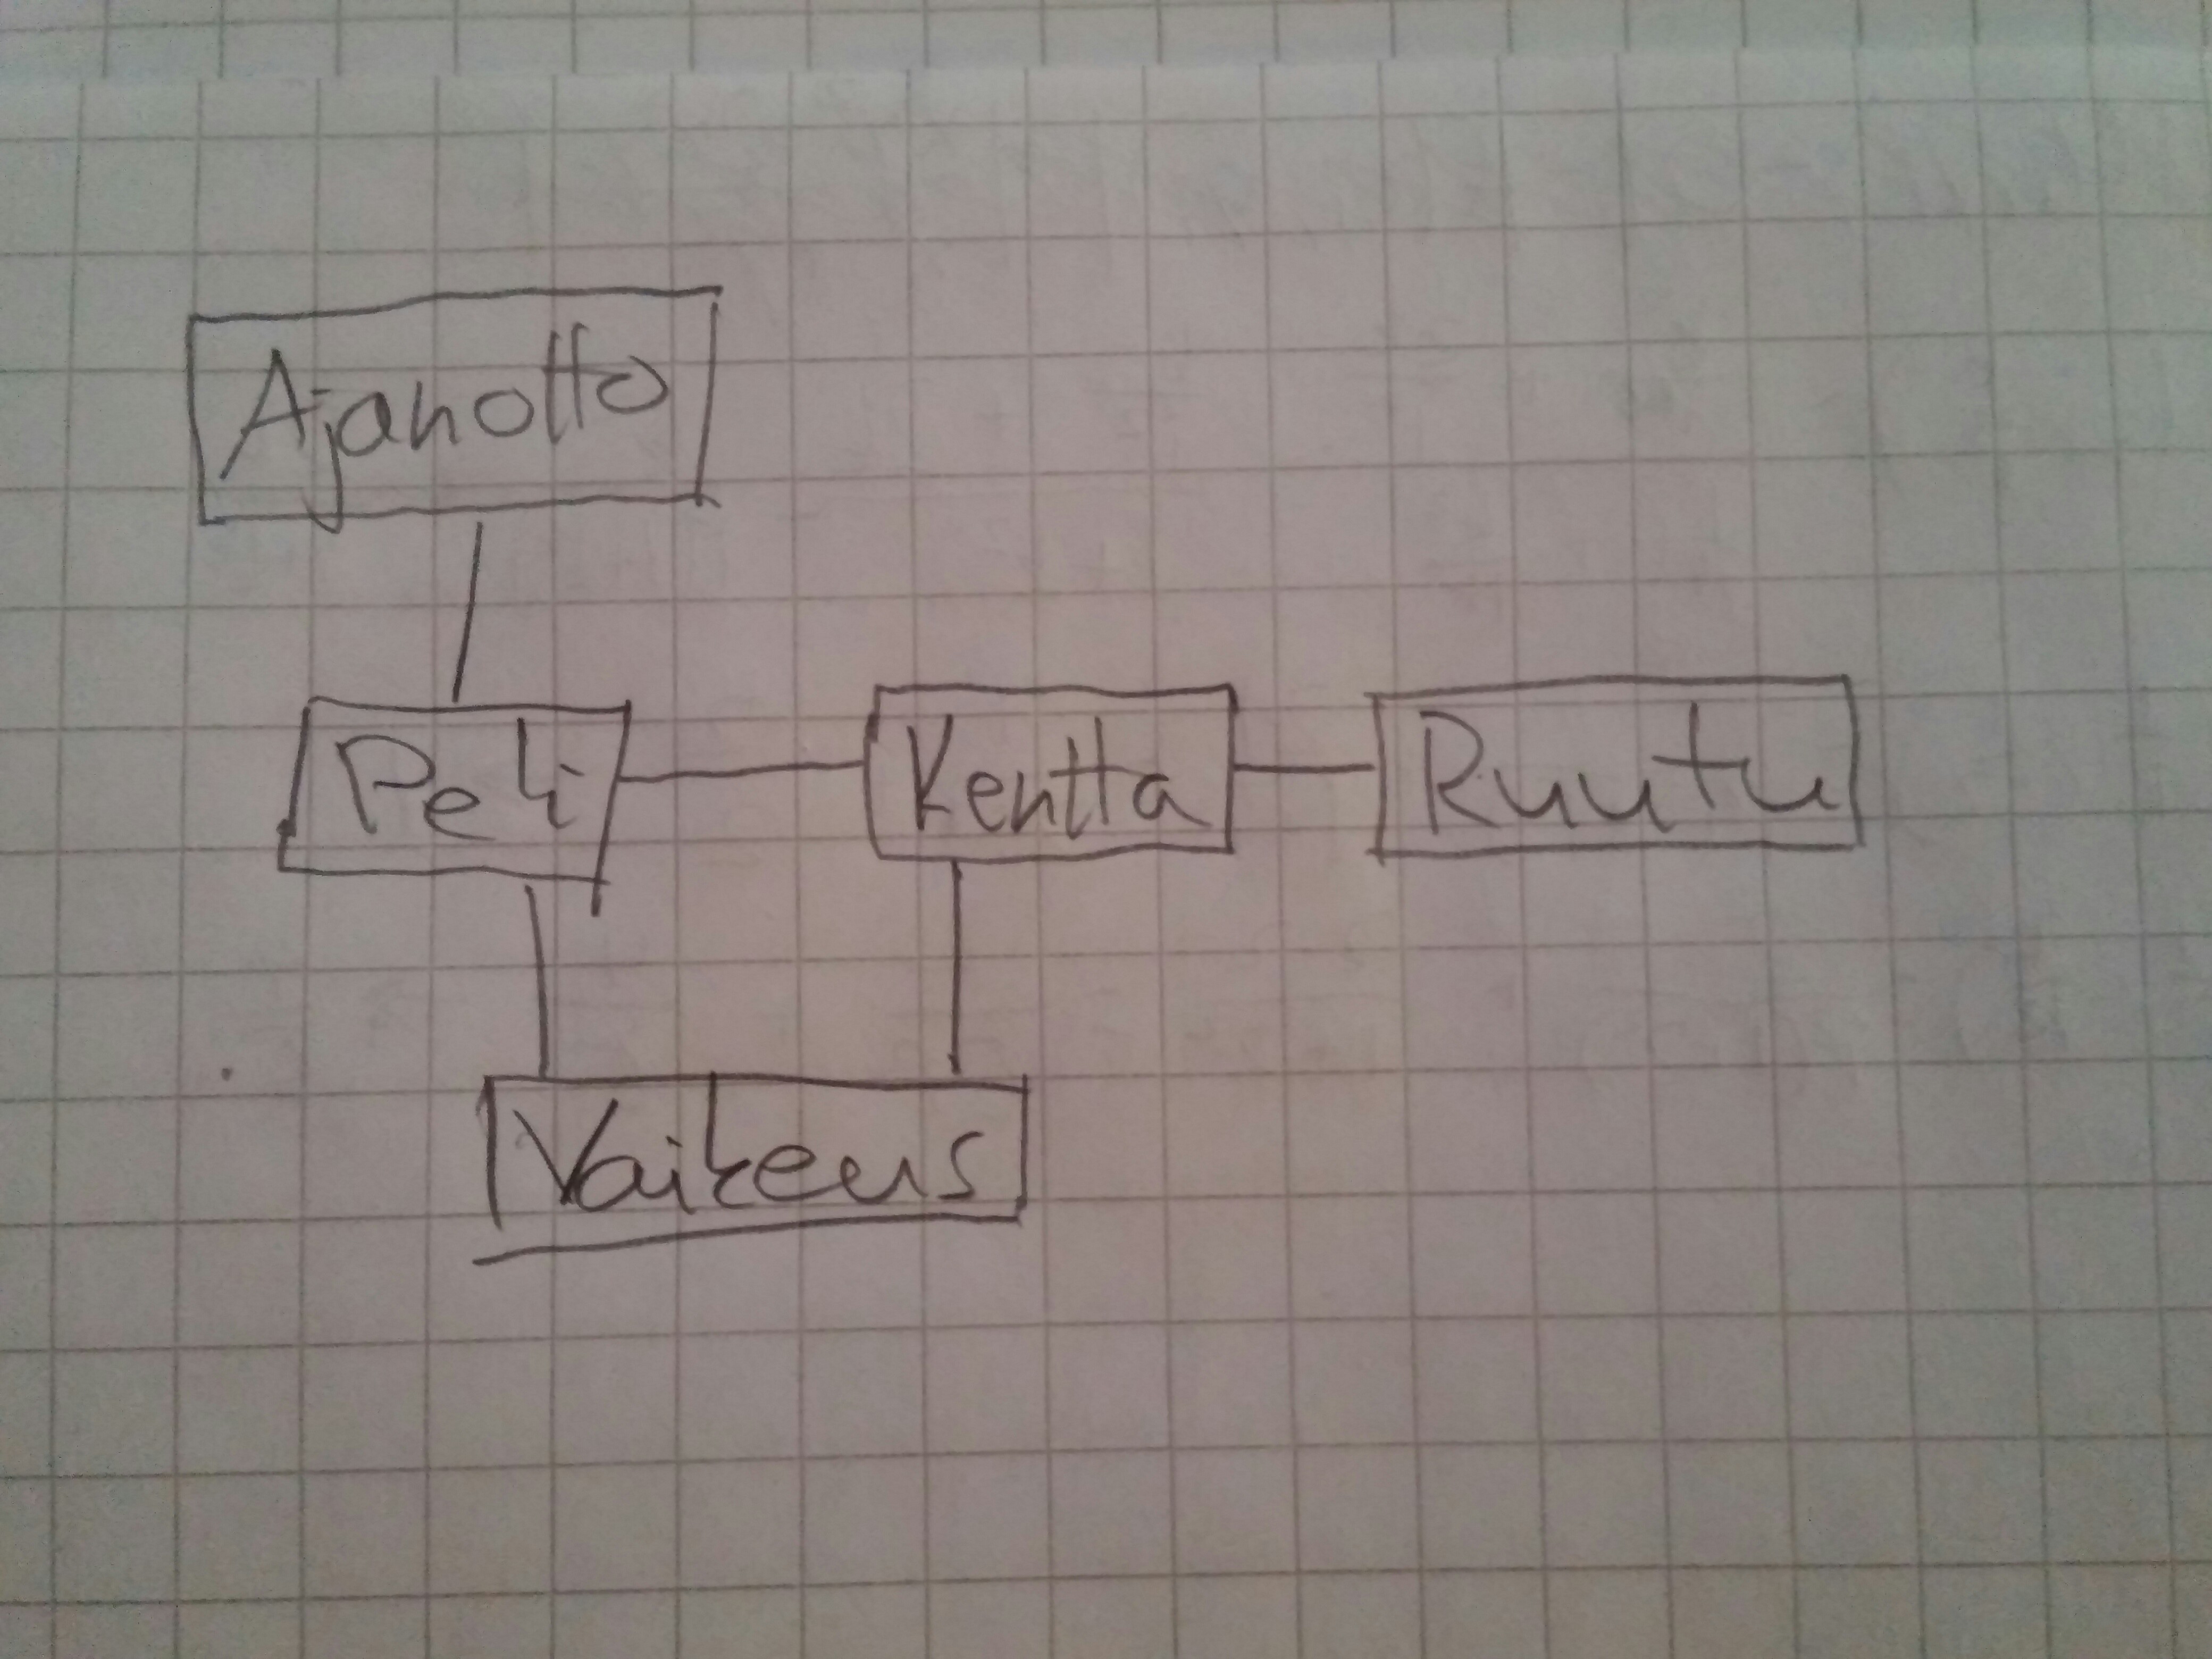 Ajanotto
Peli
Kentta
Ruutu
Vaikeus